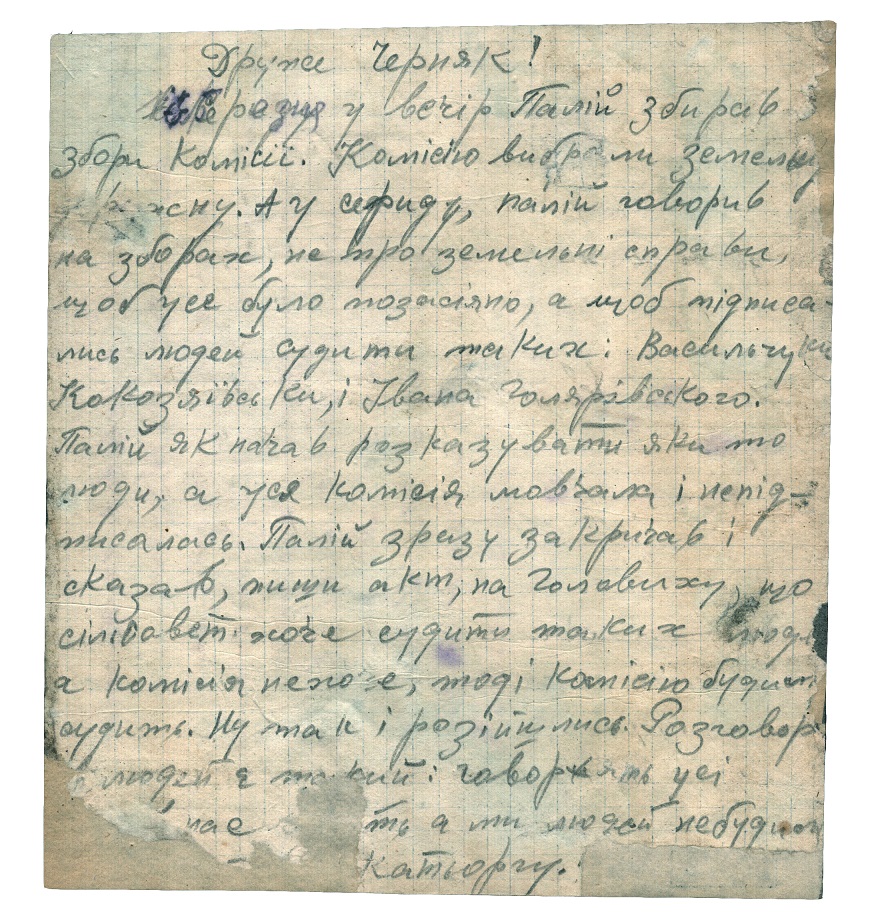 Друже Черняк!
у вечір Палій збирав
збори Комісії. Комісію вибрали
А у сериду, палій говорив
на зборах, не про земельні справи,
щоб усе було позасіяно, а щоб підписа-
лись людей судити таких: Васильчуки
Кокозяївськи, і Івана Голярівського.
Палій як начав розказувати яки то
люди, а уся комісія мовчала і непід-
писалась. Палій зразу закричав і
сказав, пиши акт, на Головиху, що
сілісовет хоче судити таких
а комісія нехоче, тоді комісію
судить. Ну так і розійшлись. Розговор
людей є такий: говорять усі
а ми людей небудим
катьоргу.